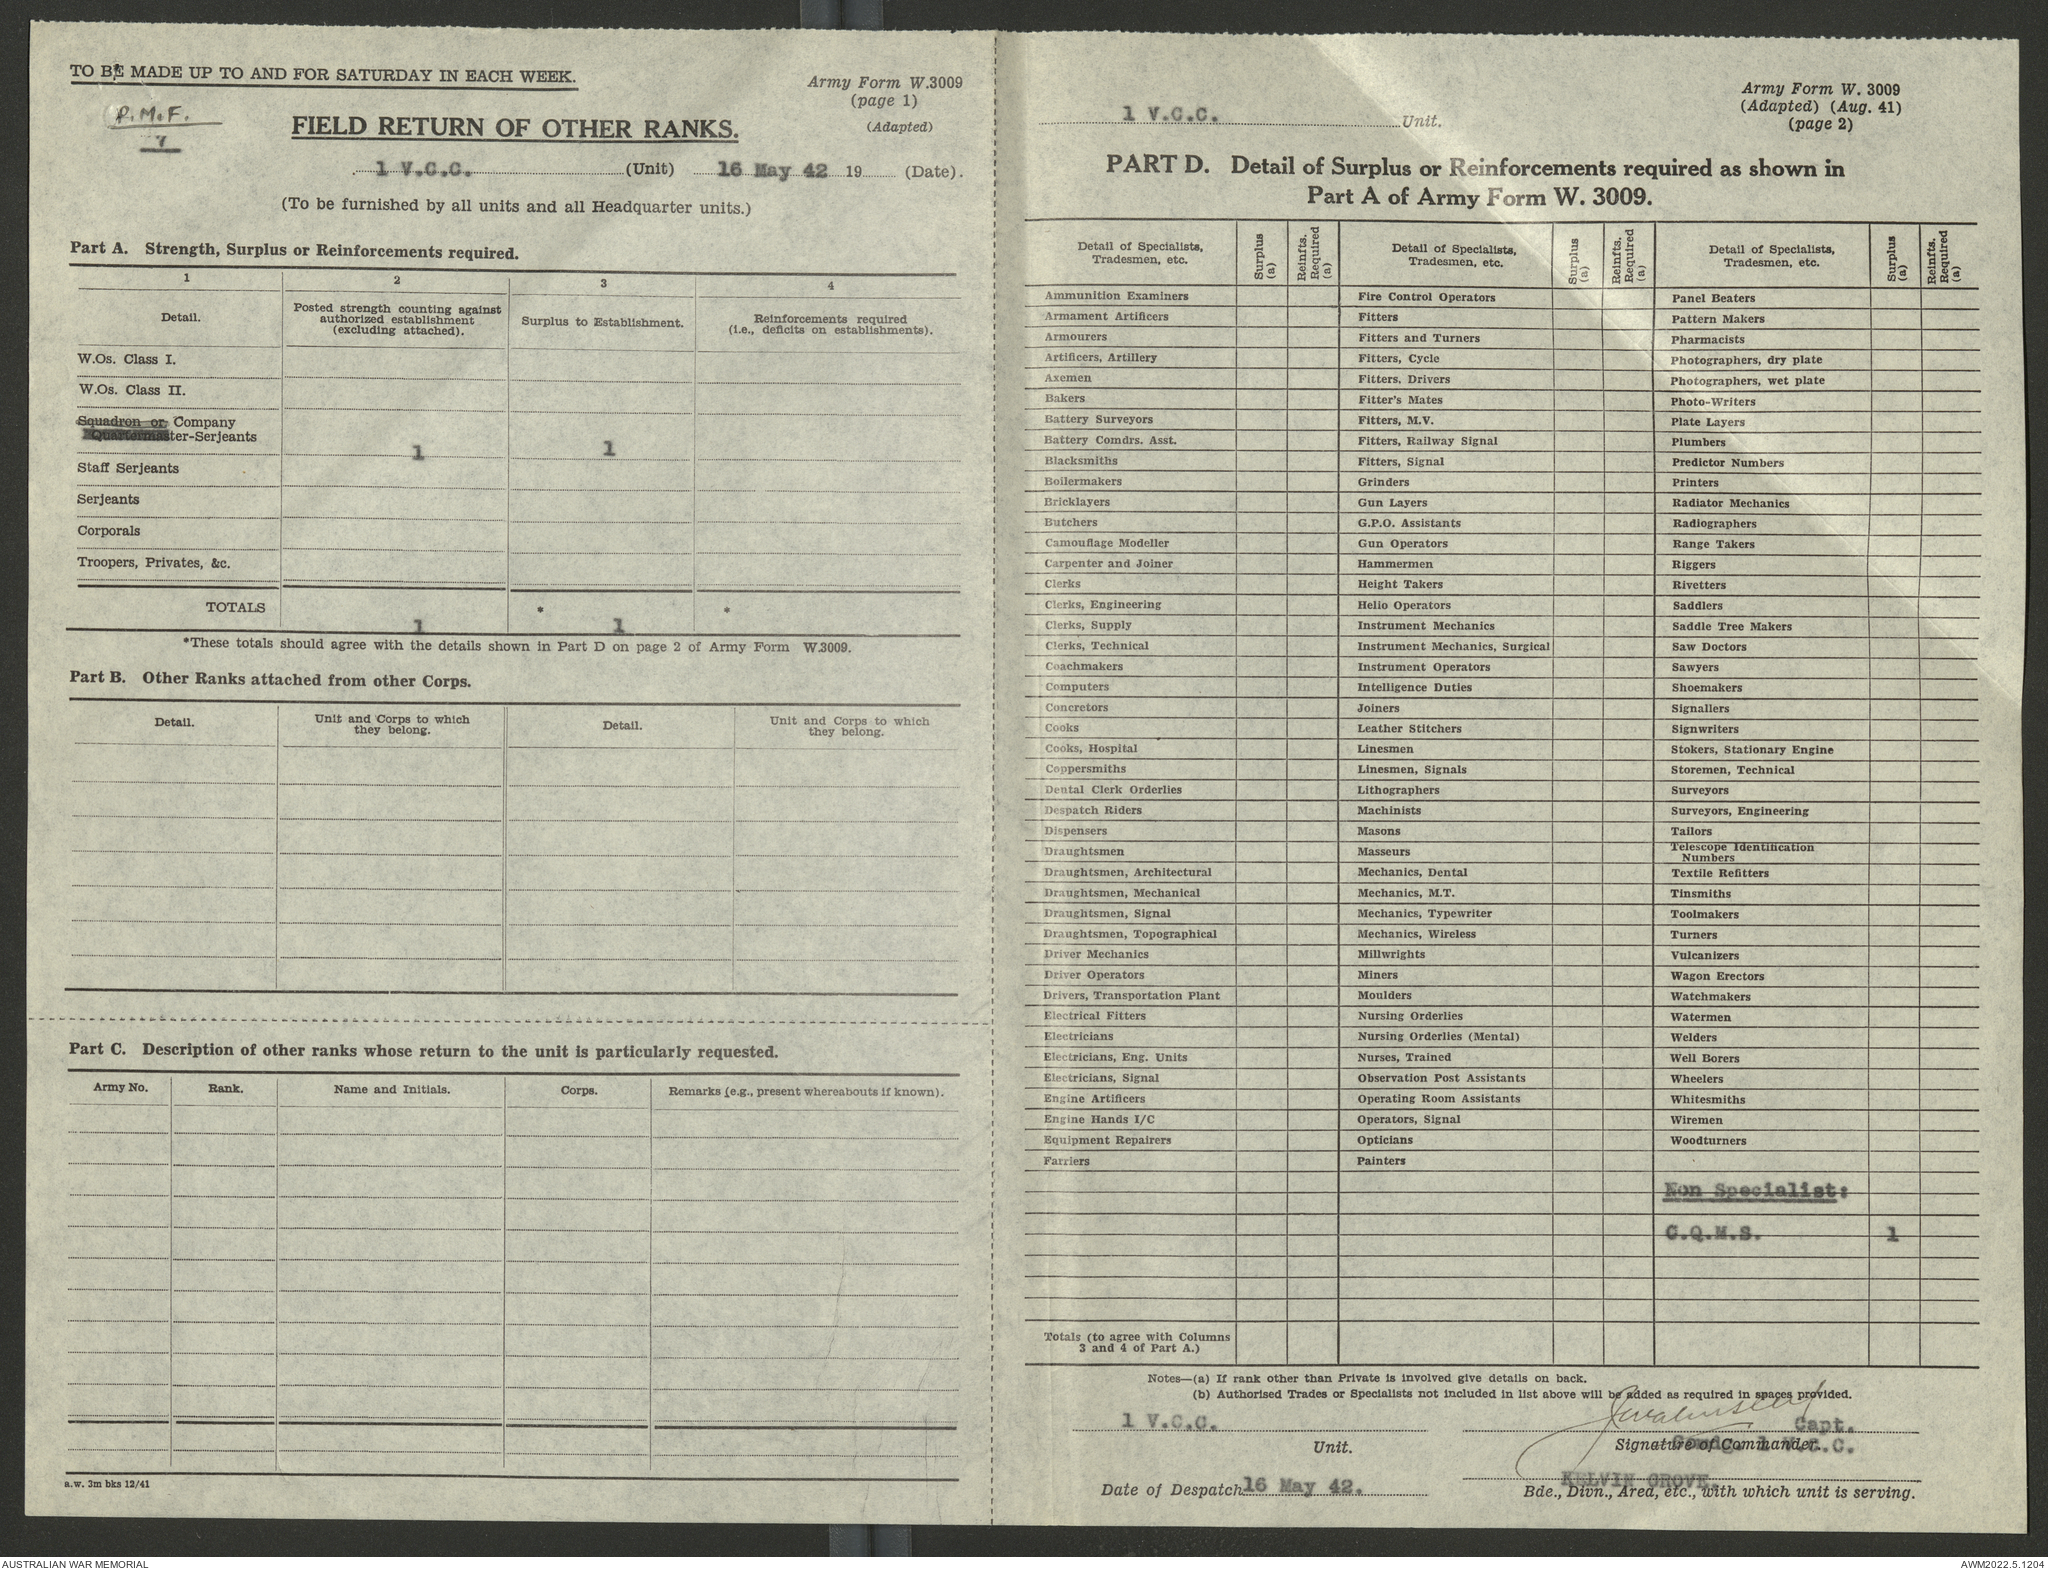 TO BE MADE UP TO AND FOR SATURDAY IN EACH WEEK.
Army Form W.3009
(page 1)
(Adapted)
P.M.F.
7
FIELD RETURN OF OTHER RANKS.
1 V.C.C. (Unit) 16 May 42 19 (Date).
(To be furnished by all units and all Headquarter units.)
Part A. Strength, Surplus or Reinforcements required.
1 2 3 4
Detail. Posted strength counting against authorized establishment (excluding attached). Surplus to Establishment. Reinforcements required (i.e., deficits on establishments).
W.Os. Class I.
W.Os. Class II.
Squadron or Company
Quartermaster-Serjeants 1 1
Staff Serjeants
Serjeants
Corporals
Troopers, Privates, &c.
TOTALS 1 * 1 *
*These totals should agree with the details shown in Part D on page 2 of Army Form W.3009.
Part B. Other Ranks attached from other Corps.
Detail. Unit and Corps to which they belong. Detail. Unit and Corps to which they belong.
Part C. Description of other ranks whose return to the unit is particularly requested.
Army No. Rank. Name and Initials. Corps. Remarks (e.g., present whereabouts if known).
a.w. 3m bks 12/41
1 V.C.C. Unit.
Army Form W. 3009
(Adapted) (Aug. 41)
(page 2)
PART D. Detail of Surplus or Reinforcements required as shown in
Part A of Army Form W. 3009.
Detail of Specialists, Tradesmen, etc. Surplus (a) Reinfts. Required (a) Detail of Specialists, Tradesmen, etc. Surplus (a) Reinfts. Required (a) Detail of Specialists, Tradesmen, etc. Surplus (a) Reinfts. Required (a)
Ammunition Examiners Fire Control Operators Panel Beaters
Armament Artificers Fitters Pattern Makers
Armourers Fitters and Turners Pharmacists
Artificers, Artillery Fitters, Cycle Photographers, dry plate
Axemen Fitters, Drivers Photographers, wet plate
Bakers Fitter's Mates Photo-Writers
Battery Surveyors Fitters, M.V. Plate Layers
Battery Comdrs. Asst. Fitters, Railway Signal Plumbers
Blacksmiths Fitters, Signal Predictor Numbers
Boilermakers Grinders Printers
Bricklayers Gun Layers Radiator Mechanics
Butchers G.P.O. Assistants Radiographers
Camouflage Modeller Gun Operators Range Takers
Carpenter and Joiner Hammermen Riggers
Clerks Height Takers Rivetters
Clerks, Engineering Helio Operators Saddlers
Clerks, Supply Instrument Mechanics Saddle Tree Makers
Clerks, Technical Instrument Mechanics, Surgical Saw Doctors
Coachmakers Instrument Operators Sawyers
Computers Intelligence Duties Shoemakers
Concretors Joiners Signallers
Cooks Leather Stitchers Signwriters
Cooks, Hospital Linesmen Stokers, Stationary Engine
Coppersmiths Linesmen, Signals Storemen, Technical
Dental Clerk Orderlies Lithographers Surveyors
Despatch Riders Machinists Surveyors, Engineering
Dispensers Masons Tailors
Draughtsmen Masseurs Telescope Identification Numbers
Draughtsmen, Architectural Mechanics, Dental Textile Refitters
Draughtsmen, Mechanical Mechanics, M.T. Tinsmiths
Draughtsmen, Signal Mechanics, Typewriter Toolmakers
Draughtsmen, Topographical Mechanics, Wireless Turners
Driver Mechanics Millwrights Vulcanizers
Driver Operators Miners Wagon Erectors
Drivers, Transportation Plant Moulders Watchmakers
Electrical Fitters Nursing Orderlies Watermen
Electricians Nursing Orderlies (Mental) Welders
Electricians, Eng. Units Nurses, Trained Well Borers
Electricians, Signal Observation Post Assistants Wheelers
Engine Artificers Operating Room Assistants Whitesmiths
Engine Hands I/C Operators, Signal Wiremen
Equipment Repairers Opticians Woodturners
Farriers Painters
Non Specialist:
C.Q.M.S. 1
Totals (to agree with Columns
3 and 4 of Part A.)
Notes—(a) If rank other than Private is involved give details on back.
(b) Authorised Trades or Specialists not included in list above will be added as required in spaces provided.
1 V.C.C. Capt.
Unit. Signature of Commander.
Comdg. 1 V.C.C.
KELVIN GROVE.
Date of Despatch 16 May 42. Bde., Divn., Area, etc., with which unit is serving.
AUSTRALIAN WAR MEMORIAL AWM2022.5.1204